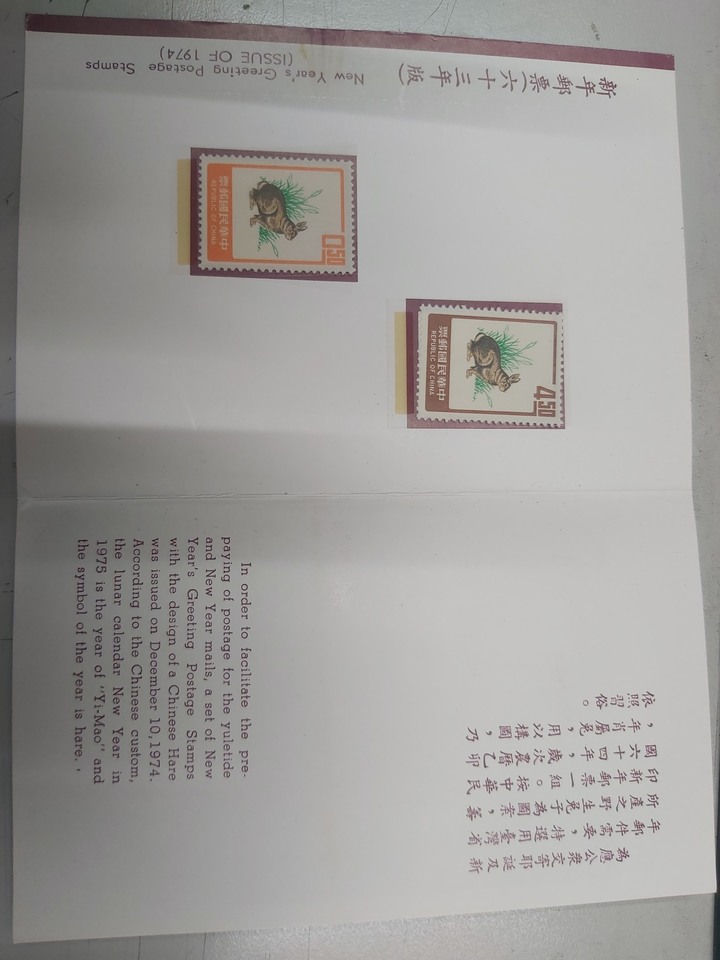 新年郵票(六十三年版)
New Year's Greeting Postage Stamps
(ISSUE OF 1974)
0.50
中華民國郵票
REPUBLIC OF CHINA
4.50
中華民國郵票
REPUBLIC OF CHINA
為應公衆交寄耶誕及新
年郵件需要,特選用臺灣省
所產之野生兔子為圖案,
印新年郵票一組。按中華民
國六十四年,歲次農曆乙卯
,年肖屬兔,用以構圖,乃
依照習俗。
In order to facilitate the pre-
paying of postage for the yuletide
and New Year mails, a set of New
Year's Greeting Postage Stamps
with the design of a Chinese Hare
was issued on December 10,1974.
According to the Chinese custom,
the lunar calendar New Year in
1975 is the year of "Yi-Mao" and
the symbol of the year is hare.